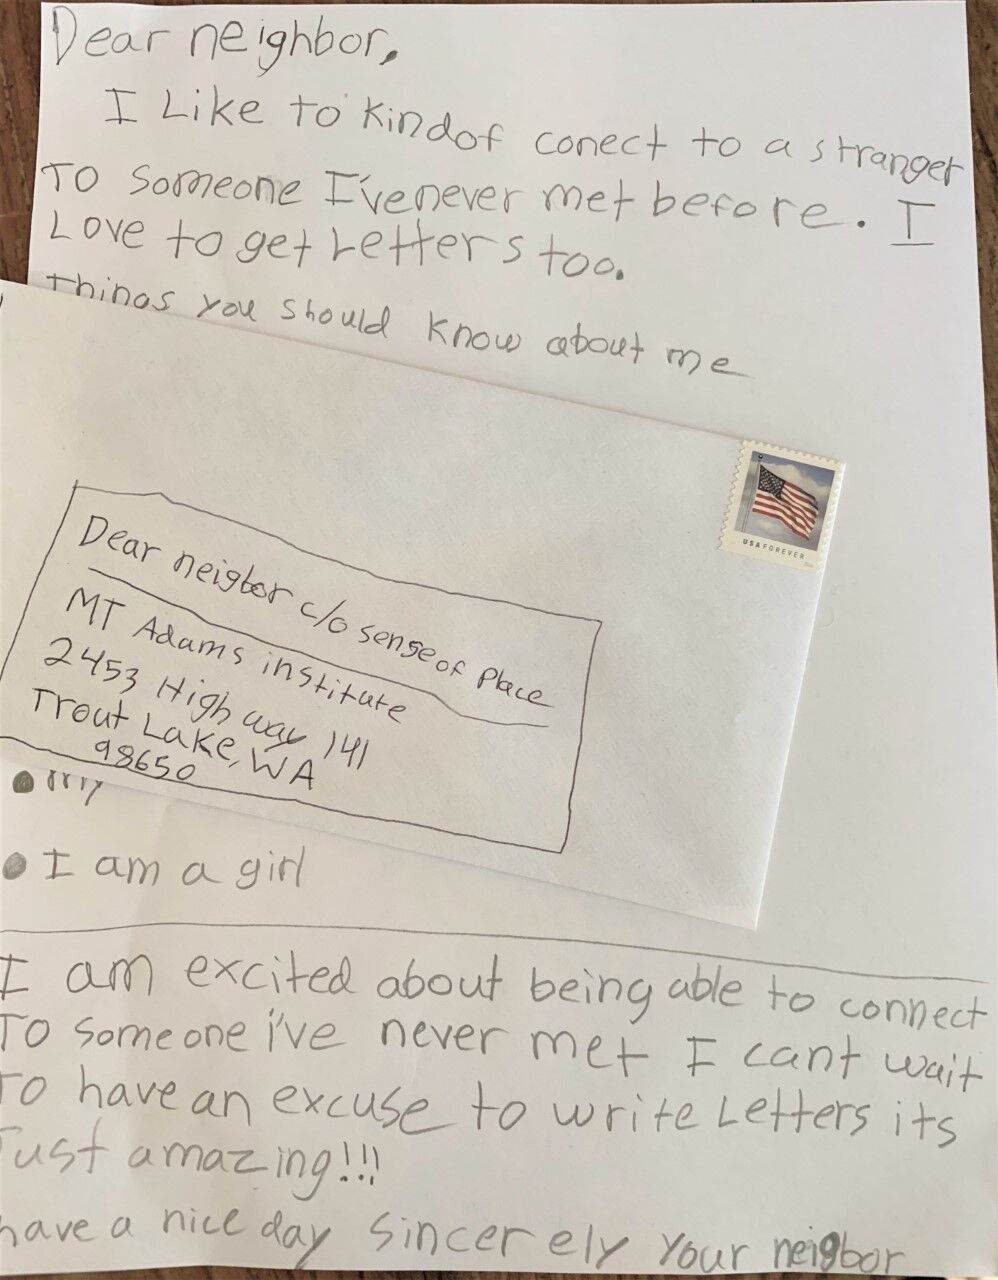 Dear neighbor,
I Like to Kindof conect to a stranger
To someone I've never met before. I
Love to get Letters too.
things you should know about me
USA FOREVER
Dear neigbor c/o sense of Place
MT Adams institute
2453 Highway 141
Trout Lake, WA
98650
my
I am a girl
I am excited about being able to connect
To someone i've never met I cant wait
To have an excuse to write Letters its
Just amazing!!!
have a nice day sincerely your neigbor